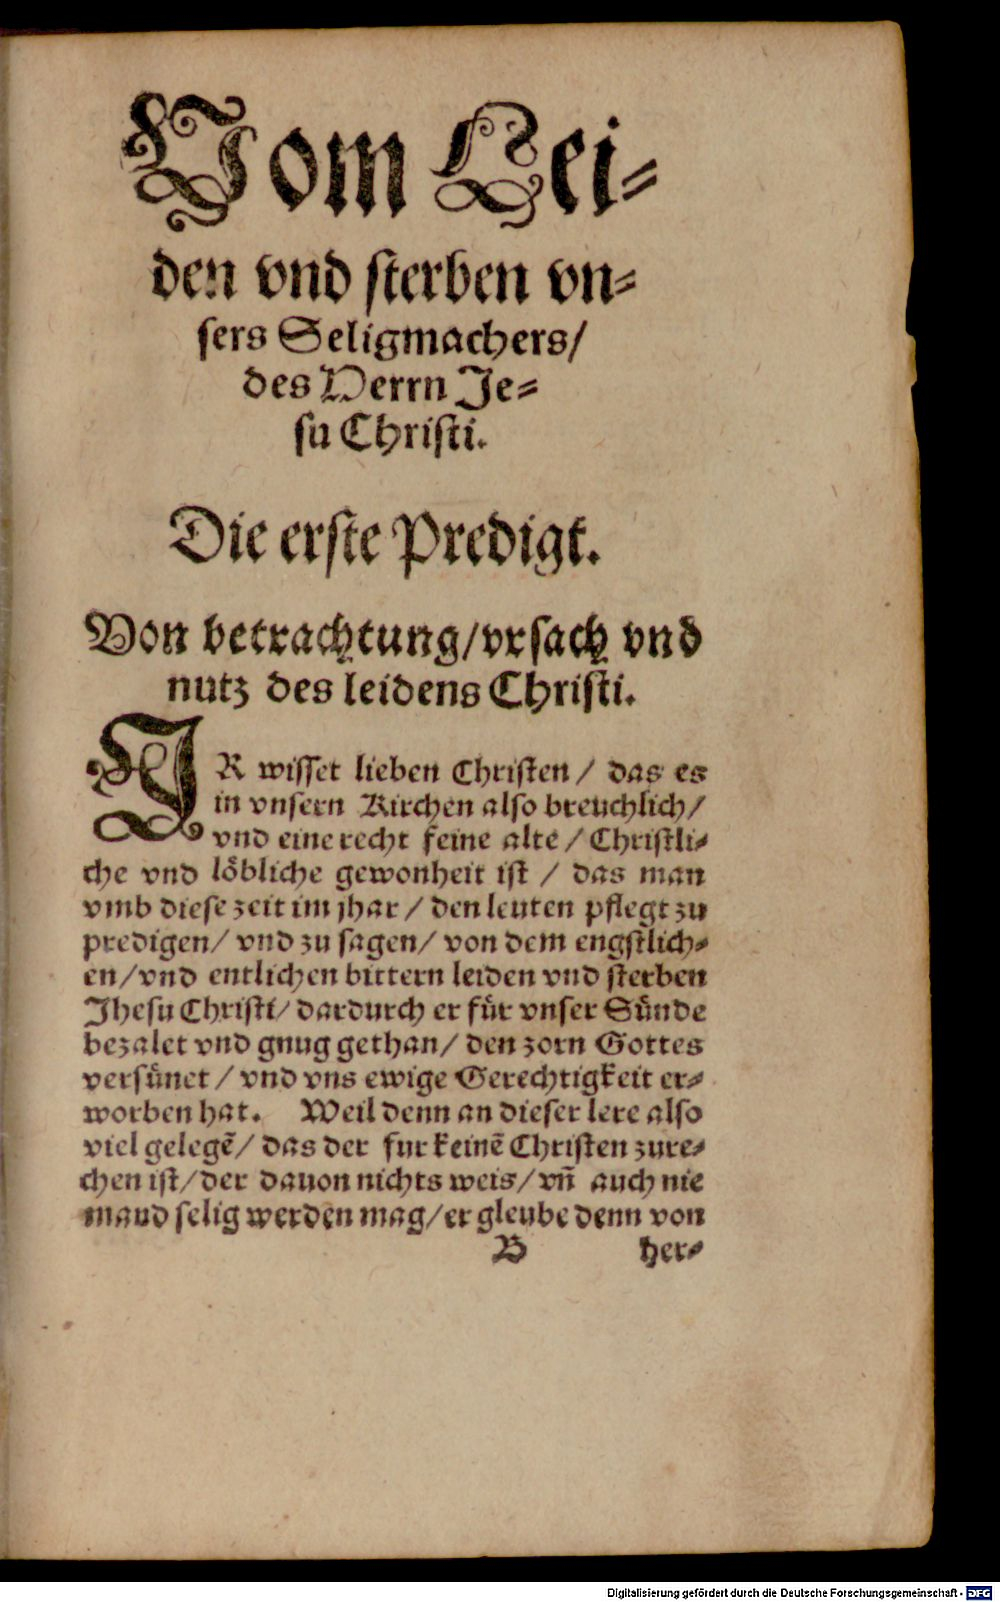 Vom Lei⸗
den vnd ſterben vn⸗
ſers Seligmachers/
des Herrn Je⸗
ſu Chriſti.
Die erſte Predigt.
Von betrachtung/vrſach vnd
nutz des leidens Chriſti.
IR wiſſet lieben Chriſten / das es
in vnſern Kirchen alſo breuchlich/
vnd eine recht feine alte / Chriſtli⸗
che vnd löbliche gewonheit iſt / das man
vmb dieſe zeit im jhar / den leuten pflegt zu
predigen/ vnd zu ſagen/ von dem engſtlich⸗
en/vnd entlichen bittern leiden vnd ſterben
Jheſu Chriſti/ dardurch er für vnſer Sünde
bezalet vnd gnug gethan/ den zorn Gottes
verſünet / vnd vns ewige Gerechtigkeit er⸗
worben hat. Weil denn an dieſer lere alſo
viel gelegē/ das der fur keinē Chriſten zure⸗
chen iſt/der dauon nichts weis/ vñ auch nie
mand ſelig werden mag/er gleube denn von
B her⸗
Digitalisierung gefördert durch die Deutsche Forschungsgemeinschaft - DFG